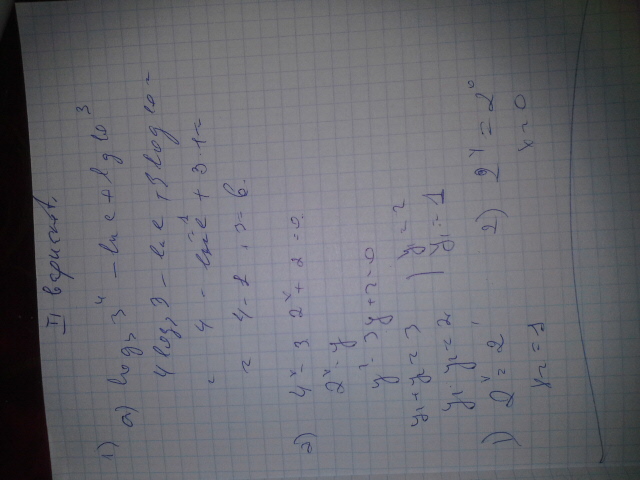 II вариант.
1) а) log₃ 3⁴ - ln e + lg 10³
4 log₃ 3 - ln e + 3 log 10 =
= 4 - ln e + 3·1 =
= 4 - 1 + 3 = 6.
2) 4ˣ - 3 2ˣ + 2 = 0.
2ˣ - y
y² - 3y + 2 = 0
y₁ + y₂ = 3 | y₁ = 2
y₁ y₂ = 2 y₂ = 1
1) 2ˣ = 2¹ 2) 2ˣ = 2⁰
x = 1 x = 0